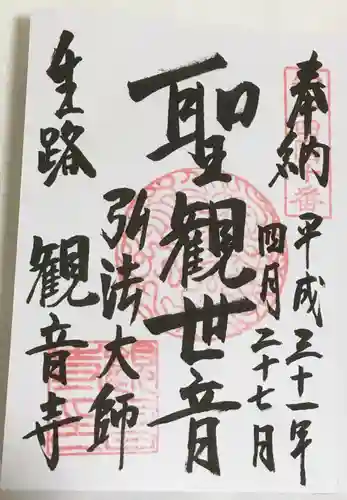 奉納
平成三十一年
四月二十七月
聖観世音
弘法大師
生路
観音寺